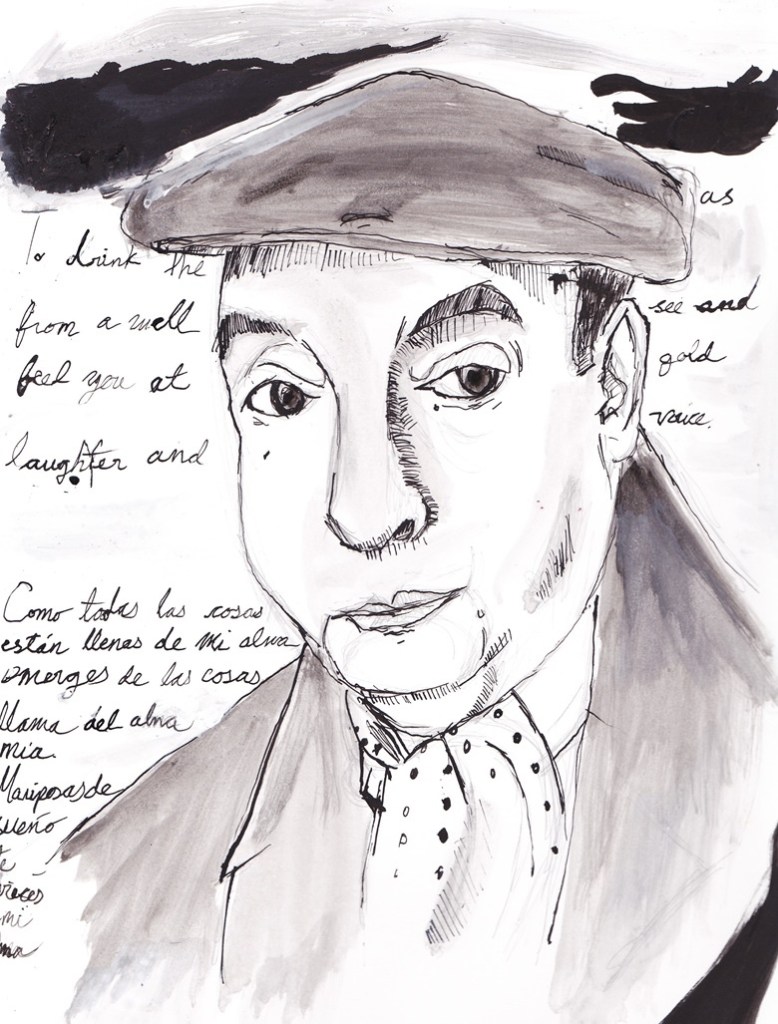 as
To drink the
from a well
see and
feel you at
gold
laughter and
voice.
Como todas las cosas
están llenas de mi alma
emerges de las cosas
llama del alma
mia.
Mariposa de
sueño
te
mi